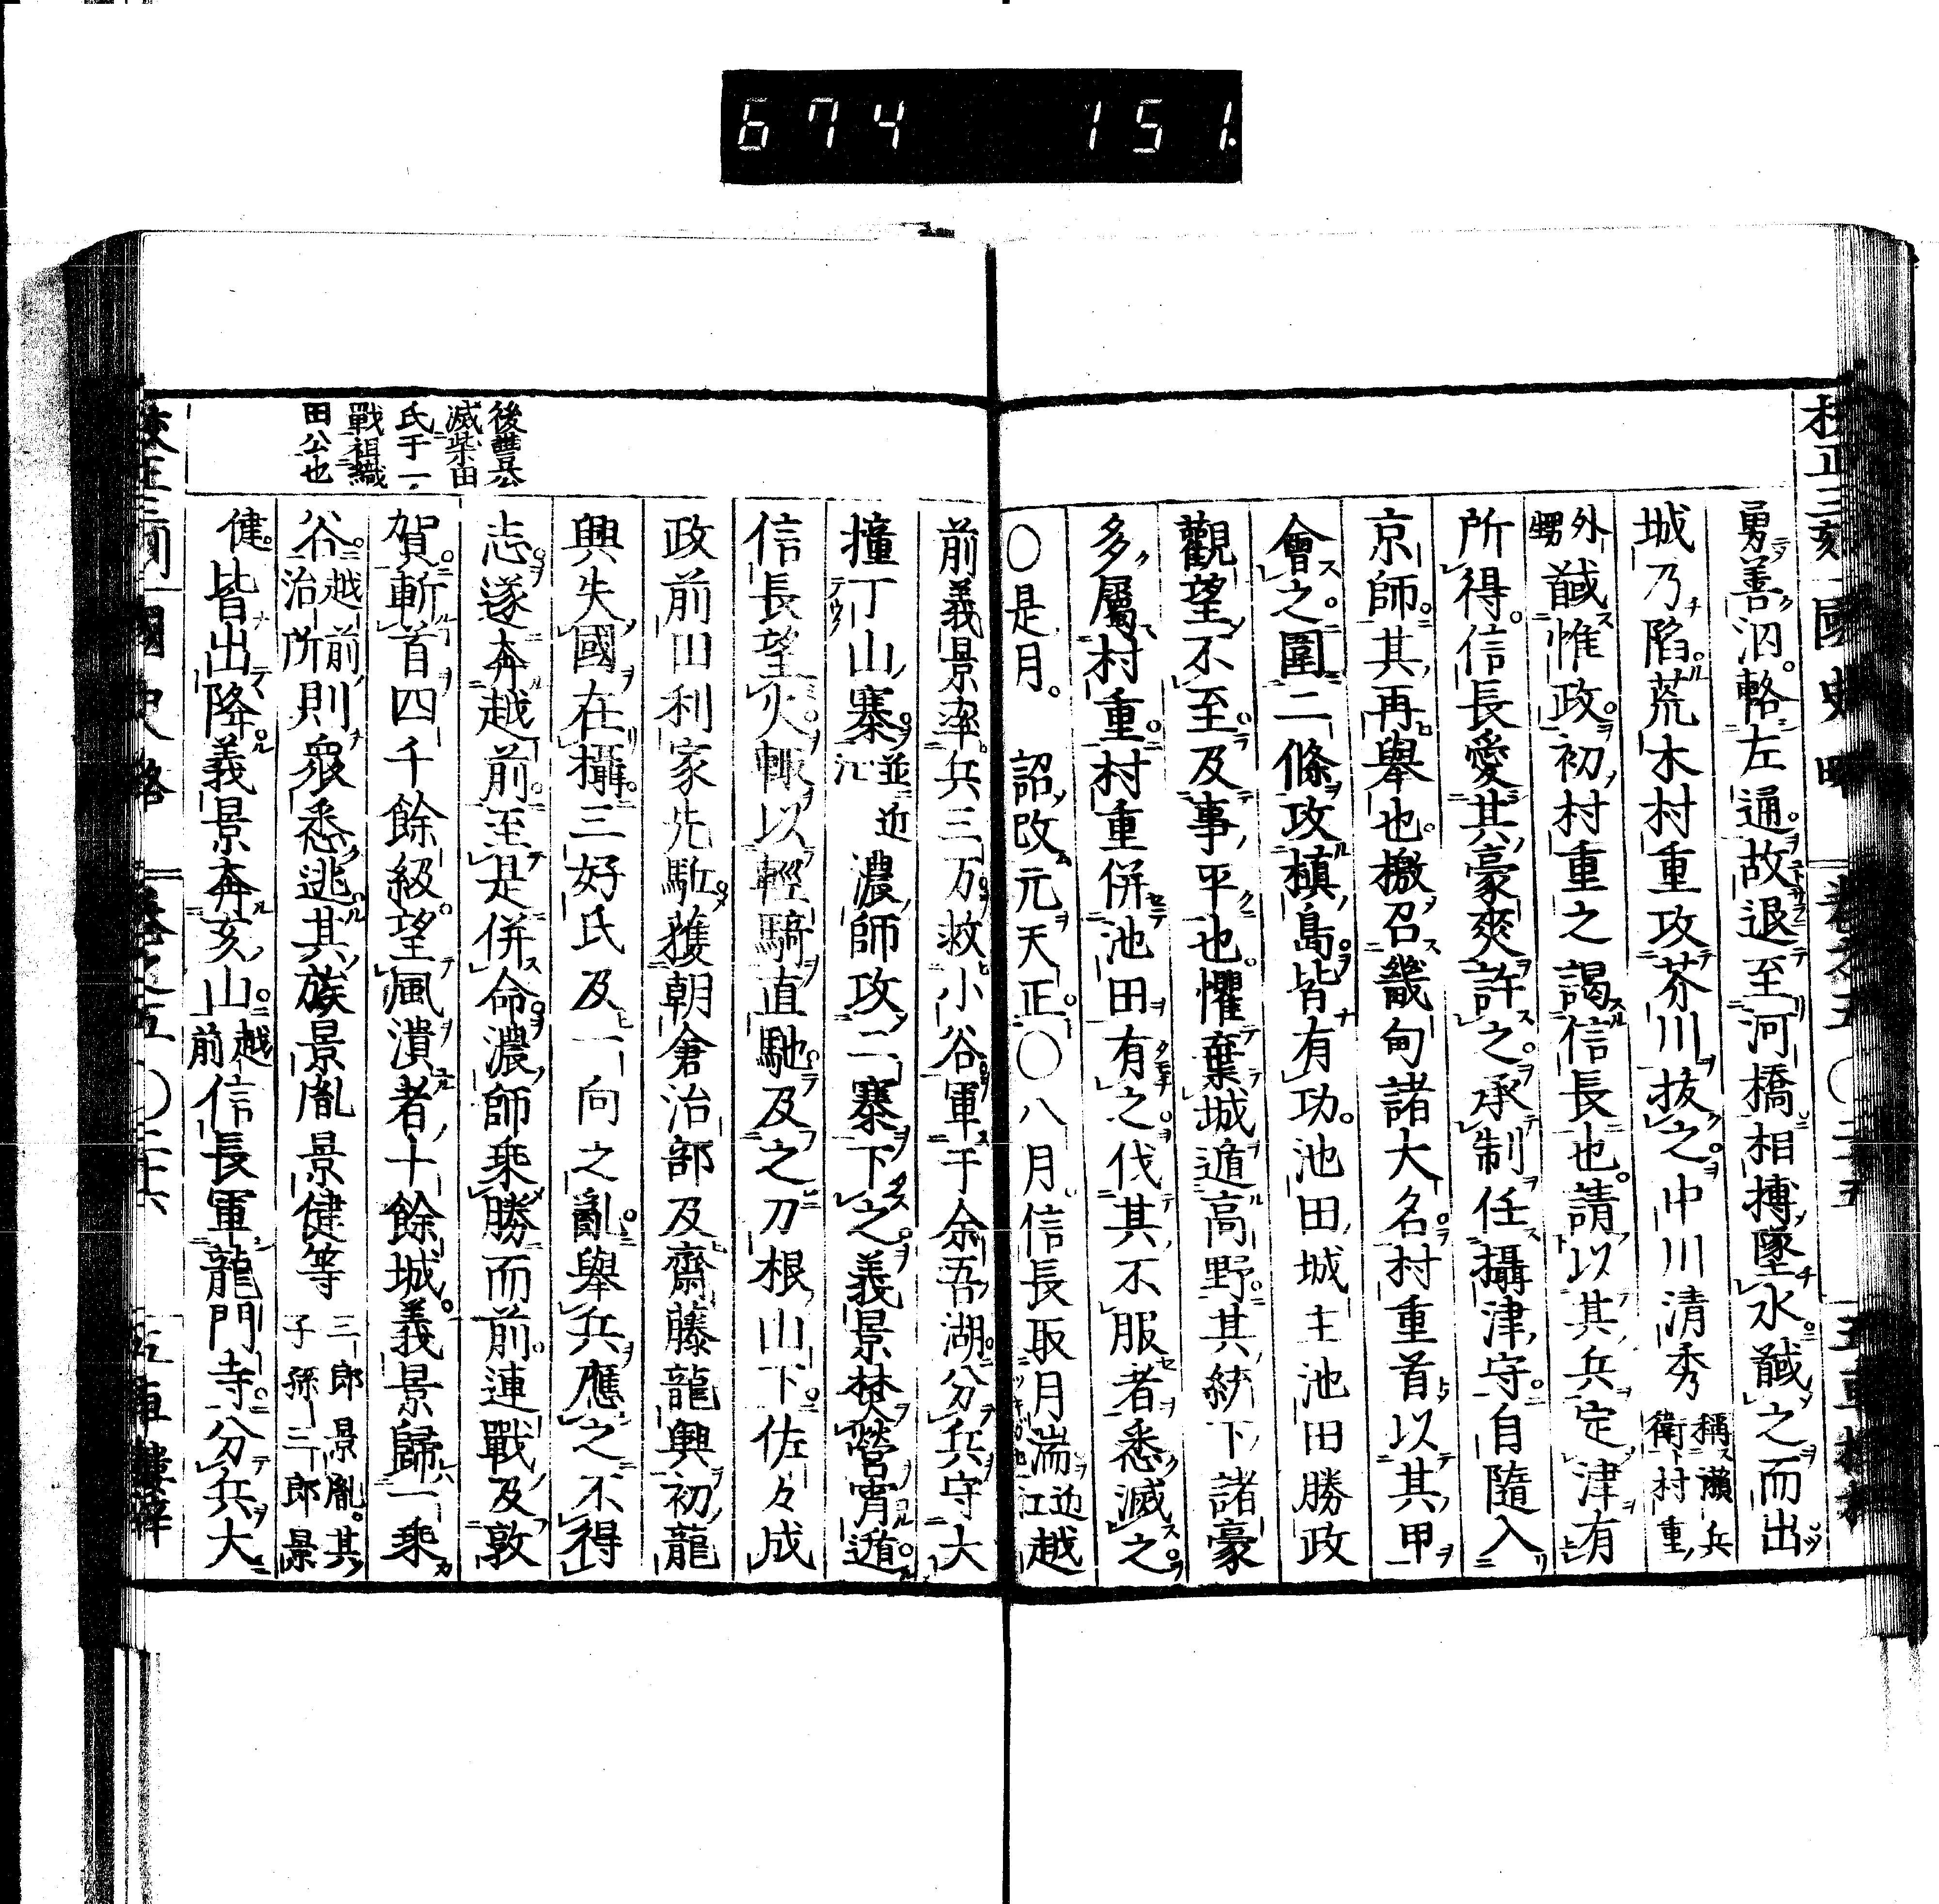 674 151.
勇善沼輅左通故退至河橋相搏墜水馘之而出
城乃陷荒木村重攻芥川拔之中川清秀稱瀨兵衛村重
外甥馘惟政初村重之謁信長也請以其兵定津有
所得信長愛其豪爽許之承制任攝津守自隨入
京師其再舉也檄召畿甸諸大名村重首以其甲
會之圍二條攻槙島皆有功池田城主池田勝政
觀望不至及事平也懼棄城遁高野其統下諸豪
多屬村重村重併池田有之伐其不服者悉滅之
〇是月詔改元天正〇八月信長取月湍近江越
前義景率兵三万救小谷軍于余吾湖分兵守大
撞丁山寨並近江濃師攻二寨下之義景焚營宵遁
信長望火輙以輕騎直馳及之刀根山下佐々成
政前田利家先駈獲朝倉治部及齋藤龍興初龍
興失國在攝三好氏及一向之亂舉兵應之不得
志遂奔越前至是併命濃師乘勝而前連戰及敦
賀斬首四千餘級望風潰者十餘城義景歸一乘
谷越前治所則衆悉逃其族景胤景健等三郎景胤其子孫三郎景
健皆出降義景奔亥山越前信長軍龍門寺分兵大
後豐公
滅柴田
氏于一
戰祖織
田公也